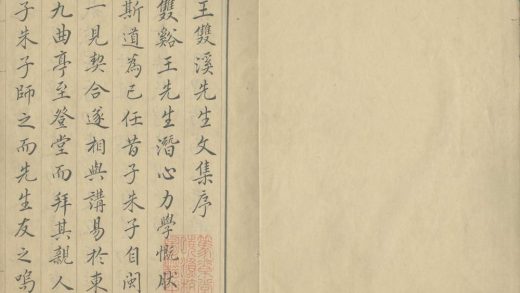 王雙溪先生文集序
雙谿王先生潛心力學慨肰
斯道為已任昔子朱子自閩
一見契合遂相與講易於東
九曲亭至登堂而拜其親人
子朱子師之而先生友之嗚